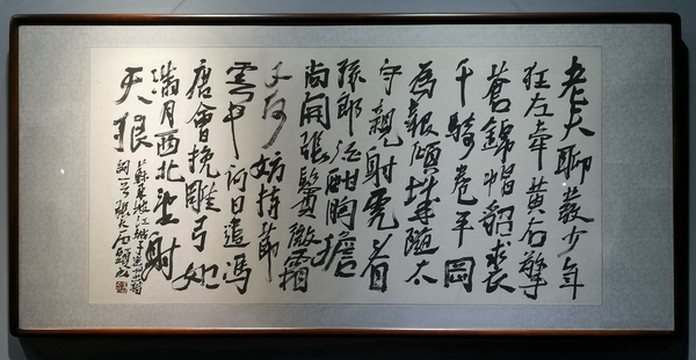 老夫聊發少年
狂左牽黃右擎
蒼錦帽貂裘
千騎卷平岡
為報傾城隨太
守親射虎看
孫郎酒酣胸膽
尚開張鬢微霜
又何妨持節
雲中何日遣馮
唐會挽雕弓如
滿月西北望射
天狼
蘇東坡江城子密州出獵
詞一首